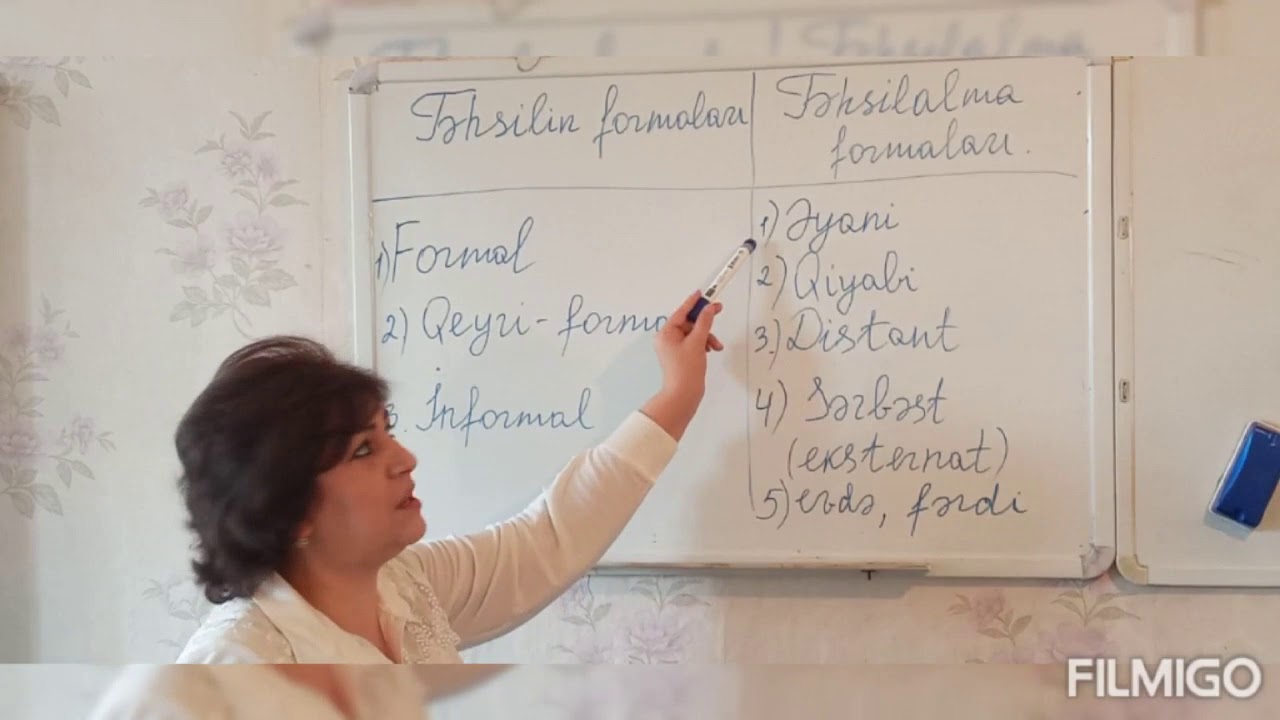 Təhsilin formaları
1) Formal
2) Qeyri-forma
3. İnformal
Təhsilalma
formaları.
1) Əyani
2) Qiyabi
3.) Distant
4) Sərbəst
(eksternat)
5) evdə, fərdi
FILMIGO